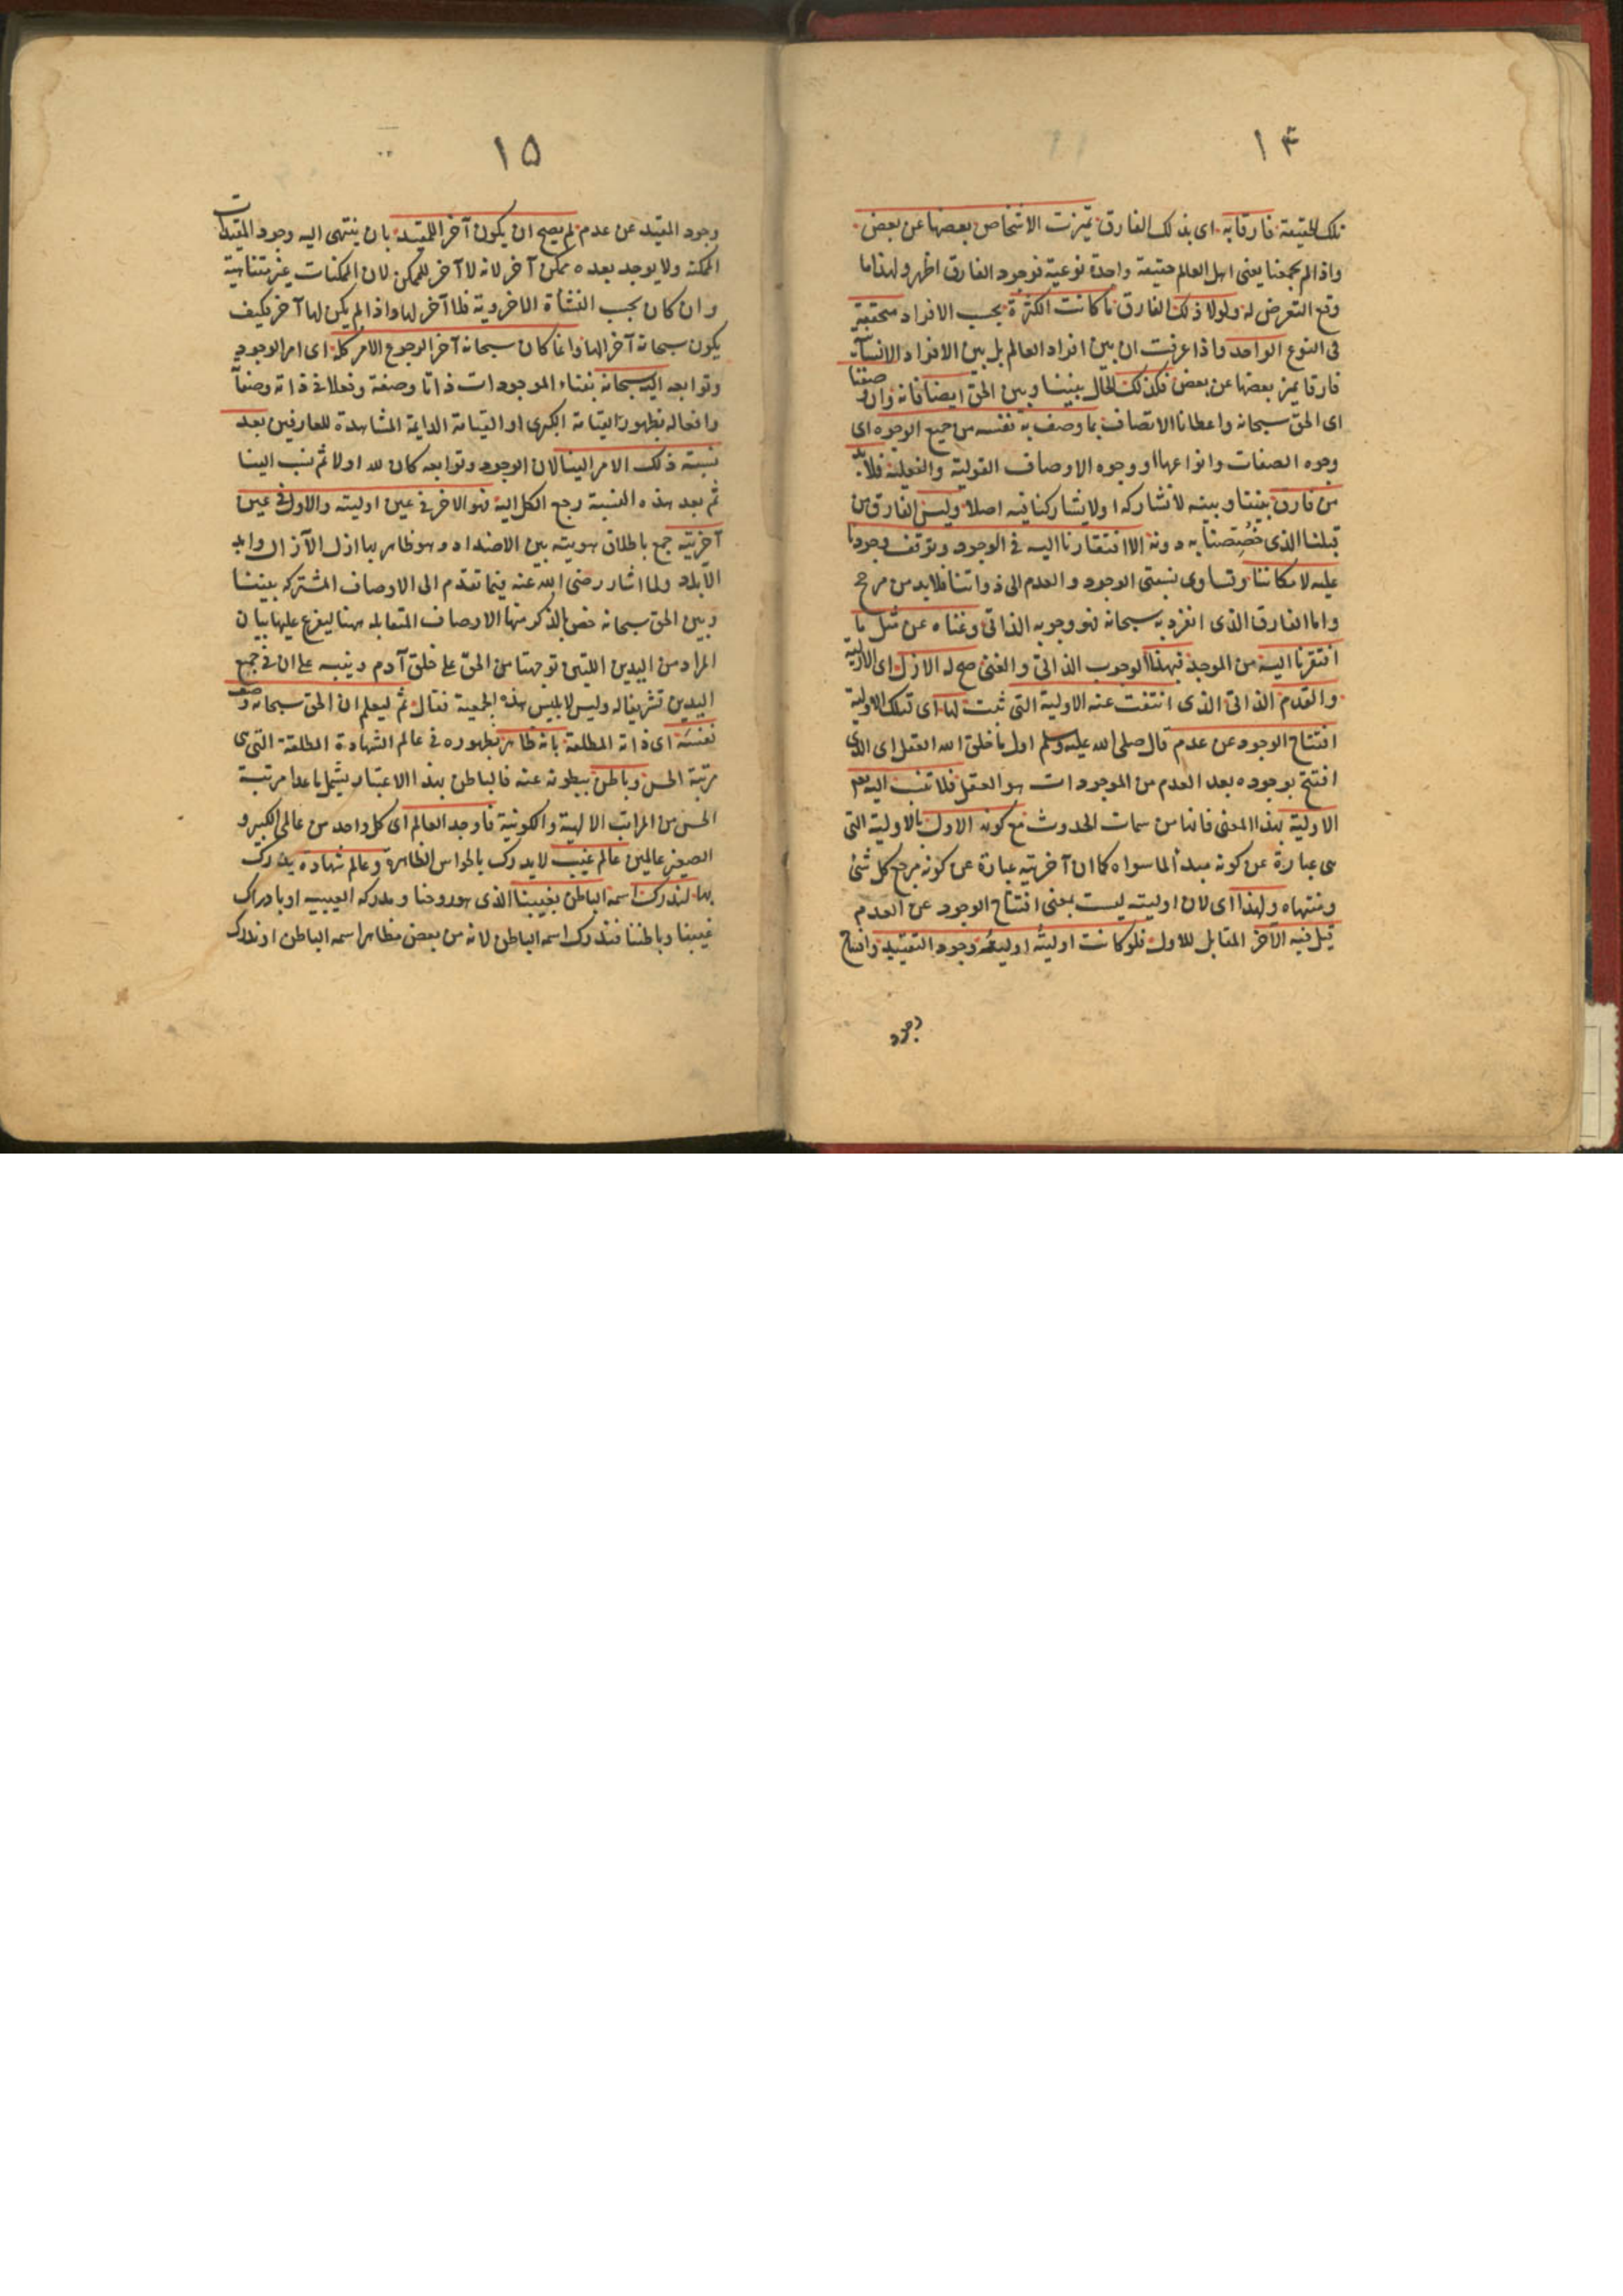 ١٤
تلك الحقيقة فارقا به اى بذلك الفارق تميزت الاشخاص بعضها عن بعض
واذا لم يجمعنا يعنى اهل العالم حقيقة واحدة نوعية فوجود الفارق اظهر ولهذا ما
وقع التعرض له ولولا ذلك الفارق ما كانت الكثرة بحسب الافراد متحققة
فى النوع الواحد واذا عرفت ان بين افراد العالم بل بين الافراد الانسانية
فارقا يميز بعضها عن بعض فكذلك الحال بيننا وبين الحق ايضا فانه وان وصفنا
اى الحق سبحانه واعطانا الاتصاف بما وصف به نفسه من جميع الوجوه اى
وجوه الصفات وانواعها او وجوه الاوصاف القولية والفعلية فلا بد
من فارق بيننا وبينه لا نشاركه اولا يشاركنا فيه اصلا وليس الفارق من
قبلنا الذى خصصنا به دونه الا افتقارنا اليه فى الوجود وتوقف وجودنا
عليه لامكاننا وتساوى نسبتى الوجود والعدم الى ذواتنا فلابد من مرجح
واما الفارق الذى انفرد به سبحانه فهو وجوبه الذاتى وغناه عن مثل ما
افتقرنا اليه من الموجد فبهذا الوجوب الذاتى والغنى صح له الازل اى الازلية
والقدم الذاتى الذى انتفت عنه الاولية التى ثبت لها اى لتلك الاولية
افتتاح الوجود عن عدم قال صلى الله عليه وسلم اول ما خلق الله العقل اى الذى
افتتح بوجوده بعد العدم من الموجودات هو العقل فلا تنسب اليه
الاولية بهذا المعنى فانها من سمات الحدوث مع كونه الاول بالاولية التى
هى عبارة عن كونه مبدأ لما سواه كما ان آخريته عبارة عن كونه مرجع كل شئ
ومنتهاه ولهذا اى لان اوليته ليست بمعنى افتتاح الوجود عن العدم
قيل فيه الآخر المقابل للاول فلو كانت اوليته اولية وجود التقييد وافتتاح
وجود
١٥
وجود المقيد عن عدم لم يصح ان يكون آخرا للمقيد بان ينتهى اليه وجود المقيدات
الممكنة ولا يوجد بعده ممكن آخر لانه لا آخر للممكن لان الممكنات غير متناهية
وان كان بحسب النشأة الاخروية فلا آخر لها واذا لم يكن لها آخر فكيف
يكون سبحانه آخرا لها وانما كان سبحانه آخرا لرجوع الامر كله اى امر الوجود
وتوابعه اليه سبحانه بفناء الموجودات ذاتا وصفة وفعلا فى ذاته وصفاته
وافعاله بظهور القيامة الكبرى او القيامة الدايمة المشاهدة للعارفين بعد
نسبة ذلك الامر الينا لان الوجود وتوابعه كان لله اولا ثم نسب الينا
ثم بعد هذه النسبة رجع الكل اليه فهو الاخر فى عين اوليته والاول فى عين
آخريته جمع باطلاق هويته بين الاضداد وهو ظاهر بها ازل الآزال وابد
الآباد ولما اشار رضى الله عنه فيما تقدم الى الاوصاف المشتركه بيننا
وبين الحق سبحانه خص بالذكر منها الاوصاف المتقابله ههنا ليفرع عليها بيان
المراد من اليدين اللتين توجهتا من الحق على خلق آدم وينبه على ان فى جمع
اليدين تشريفا له وليس لابليس هذه الجمعية فقال ثم ليعلم ان الحق سبحانه وصف
نفسه اى ذاته المطلقة بانه ظاهر بظهوره فى عالم الشهادة المطلقة التى هى
مرتبة الحس وباطن ببطونه عنه فالباطن بهذا الاعتبار يشمل ما عدا مرتبة
الحس من المراتب الالهية والكونية فاوجد العالم اى كل واحد من عالمى الكبير و
الصغير عالمين عالم غيب لا يدرك بالحواس الظاهرة وعالم شهادة يدرك
بها لندرك اسمه الباطن بغيبنا الذى هو روحنا ومدركه الغيبيه او بادراك
غيبنا وباطننا فندرك اسمه الباطن لانه من بعض مظاهر اسمه الباطن او ندرك